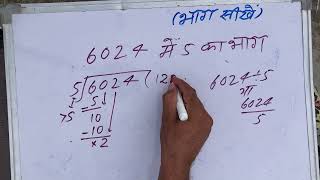 (भाग सीखें)
6024 में 5 का भाग
5)6024(12
5
10
-10
×2
6024÷5
या
6024
5